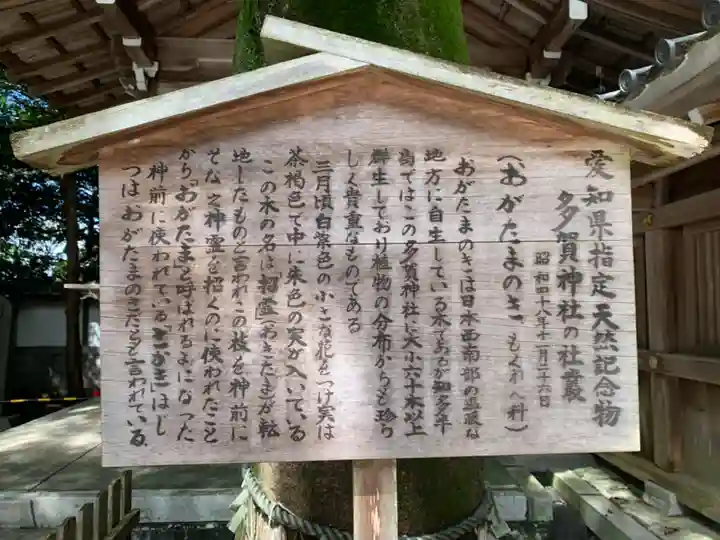 愛知県指定天然記念物
多賀神社の社叢
昭和四十八年十一月二十六日
(おがたまのき もくれん科)
おがたまのきは日本西南部の温暖な
地方に自生している木であるが知多半
島ではこの多賀神社に大小六十本以上
群生しており植物の分布からも珍ら
しく貴重なものである
三月頃白紫色の小さな花をつけ実は
茶褐色で中に朱色の実が入いている
この木の名は招霊(おきたま)が転
地したものと言われこの枝を神前に
そなえ神霊を招くのに使われたこと
から「おがたま」と呼ばれるよになった
神前に使われている「さかき」はじ
つはおがたまのきだとも言われている。